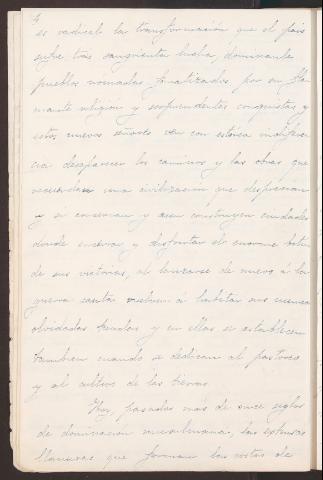 4
es radical la transformación que el pais
sufre tras sangrienta lucha; dominante
pueblos nómadas, fanatizados por su fla-
mante religión y sorprendentes conquistas y
estos nuevos señores ven con estoica indiferen-
cia desaparecer los caminos y las obras que
recuerdan una civilización que desprecian
y si conservan y aun construyen ciudades
donde encerrar y disfrutar el enorme botin
de sus victorias, al lanzarse de nuevo á la
guerra santa vuelven á habitar sus nunca
olvidadas tiendas y en ellas se establecen
tambien cuando se dedican al pastoreo
y al cultivo de las tierras.
Hoy, pasados más de once siglos
de dominación musulmana, las extensas
llanuras que forman las costas de